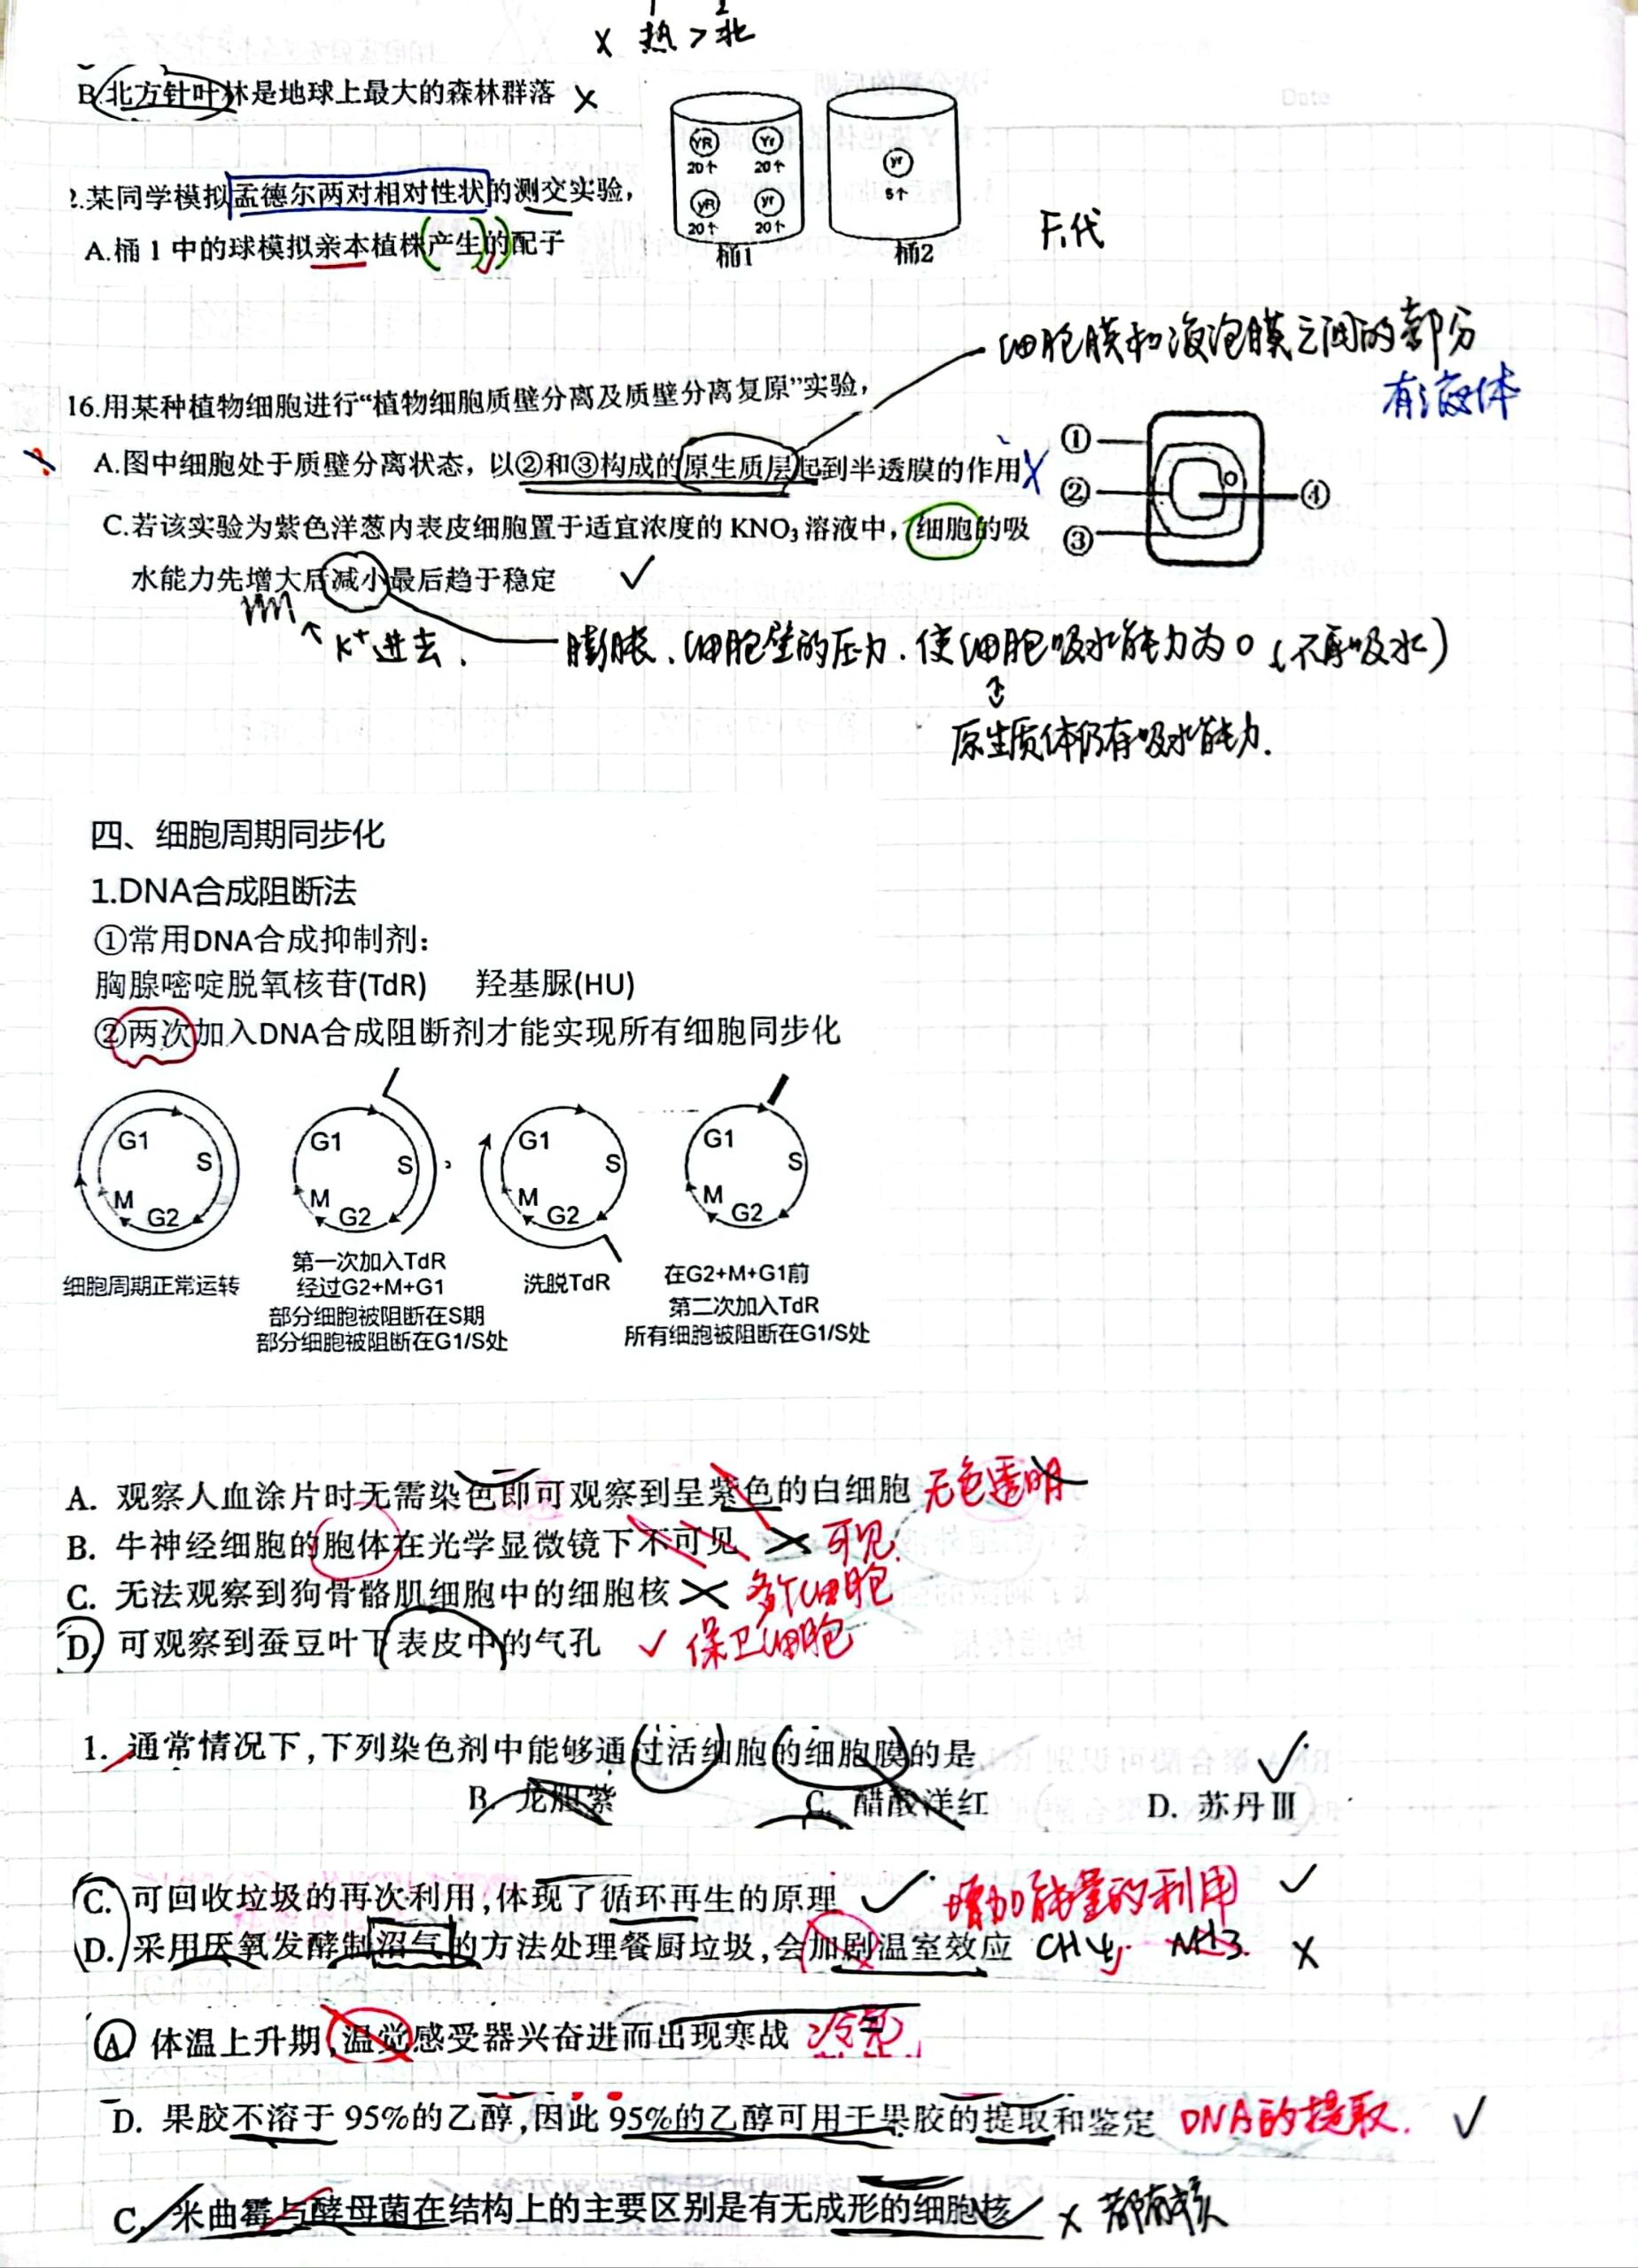 × 热 > 北
B.北方针叶林是地球上最大的森林群落 ×
YR 20个 Yr 20个
yR 20个 yr 20个
yr 5个
桶1 桶2
2.某同学模拟孟德尔两对相对性状的测交实验,
A.桶 1 中的球模拟亲本植株产生的配子
F₁代
细胞膜和液泡膜之间的部分
有液体
16.用某种植物细胞进行“植物细胞质壁分离及质壁分离复原”实验,
A.图中细胞处于质壁分离状态，以②和③构成的原生质层起到半透膜的作用 ×
① ② ③ ④
C.若该实验为紫色洋葱内表皮细胞置于适宜浓度的 KNO₃ 溶液中，细胞的吸
水能力先增大后减小最后趋于稳定 ✓
↑ K⁺进去.
膨胀、细胞壁的压力.使细胞吸水能力为0(不再吸水)
原生质体仍有吸水能力.
四、细胞周期同步化
1.DNA合成阻断法
①常用DNA合成抑制剂：
胸腺嘧啶脱氧核苷(TdR) 羟基脲(HU)
②两次加入DNA合成阻断剂才能实现所有细胞同步化
G1 S G2 M
G1 S G2 M
G1 S G2 M
G1 S G2 M
细胞周期正常运转
第一次加入TdR
经过G2+M+G1
部分细胞被阻断在S期
部分细胞被阻断在G1/S处
洗脱TdR
在G2+M+G1前
第二次加入TdR
所有细胞被阻断在G1/S处
A. 观察人血涂片时无需染色即可观察到呈紫色的白细胞 无色透明
B. 牛神经细胞的胞体在光学显微镜下不可见 × 可见.
C. 无法观察到狗骨骼肌细胞中的细胞核 × 多个细胞
D. 可观察到蚕豆叶下表皮中的气孔 ✓ 保卫细胞
1. 通常情况下,下列染色剂中能够通过活细胞的细胞膜的是 ✓
B. 龙胆紫 C. 醋酸洋红 D. 苏丹Ⅲ
C. 可回收垃圾的再次利用,体现了循环再生的原理 ✓ 增加能量的利用 ✓
D. 采用厌氧发酵制沼气的方法处理餐厨垃圾,会加剧温室效应 CH4. NH3. ×
A 体温上升期,温觉感受器兴奋进而出现寒战 冷觉
D. 果胶不溶于 95%的乙醇,因此 95%的乙醇可用于果胶的提取和鉴定 DNA的提取. ✓
C. 米曲霉与酵母菌在结构上的主要区别是有无成形的细胞核 × 都有核